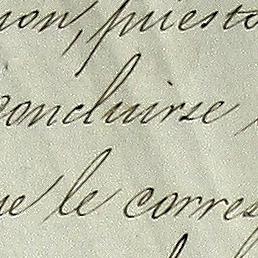 ion, puesto
concluirse
ue le corres